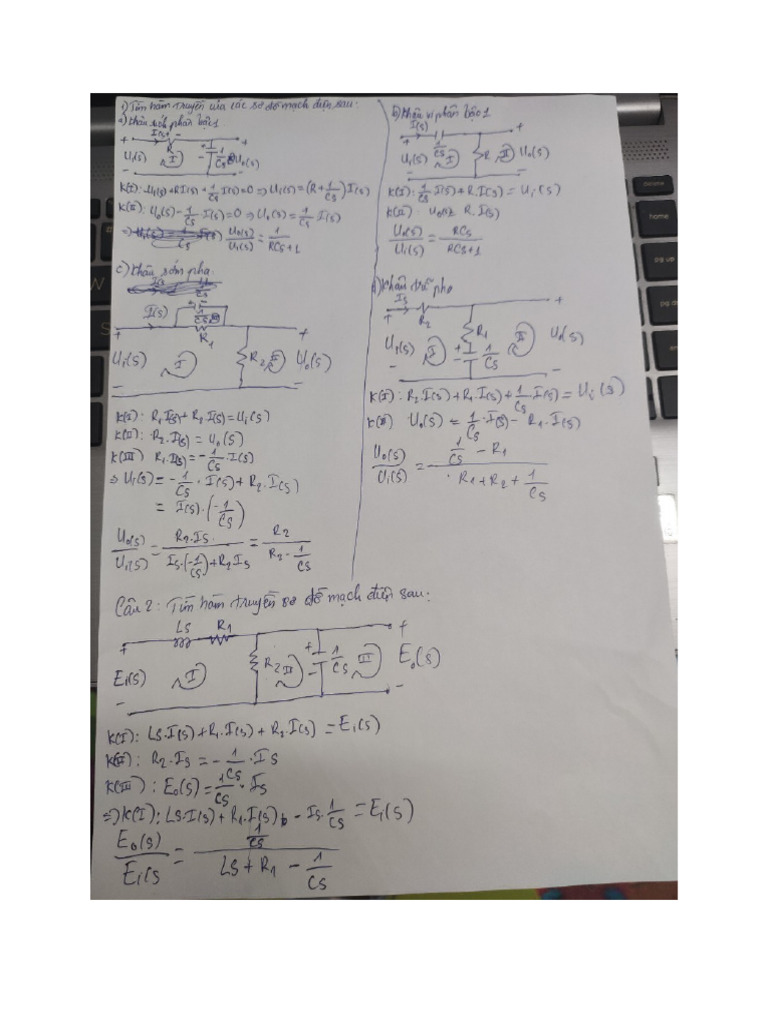 1) Tìm hàm truyền của các sơ đồ mạch điện sau:
a) Khâu tích phân bậc 1
I(s)
+ R - + +
Ui(s) I 1/Cs II Uo(s)
- -
K(I): -Ui(s) + R I(s) + 1/Cs I(s) = 0 ⇒ Ui(s) = (R + 1/Cs) I(s)
K(II): Uo(s) - 1/Cs · I(s) = 0 ⇒ Uo(s) = 1/Cs I(s)
⇒ Uo(s)/Ui(s) = 1/(RCs + 1)
b) Khâu vi phân bậc 1
I(s)
+ 1/Cs +
Ui(s) I R II Uo(s)
- -
K(I): 1/Cs I(s) + R.I(s) = Ui(s)
K(II): Uo(s) = R.I(s)
Uo(s)/Ui(s) = RCs/(RCs + 1)
c) Khâu sớm pha
I(s) 1/Cs
+ R1 +
Ui(s) I R2 II Uo(s)
- -
K(I): R1.I(s) + R2.I(s) = Ui(s)
K(II): R2.I(s) = Uo(s)
K(III) R1.I(s) = -1/Cs · I(s)
⇒ Ui(s) = -1/Cs · I(s) + R2.I(s)
= I(s).(-1/Cs)
Uo(s)/Ui(s) = R2.Is/(Is.(-1/Cs) + R2Is) = R2/(R2 - 1/Cs)
d) Khâu trễ pha
+ Is R2 +
Ui(s) I R1 II Uo(s)
+ - 1/Cs
- -
K(I): R2.I(s) + R1.I(s) + 1/Cs.I(s) = Ui(s)
K(II) Uo(s) = 1/Cs.I(s) - R1.I(s)
Uo(s)/Ui(s) = (1/Cs - R1)/(R1 + R2 + 1/Cs)
Câu 2: Tìm hàm truyền sơ đồ mạch điện sau:
+ Ls R1 +
Ei(s) I R2 II + - 1/Cs III Eo(s)
- -
K(I): LS.I(s) + R1.I(s) + R2.I(s) = Ei(s)
K(II): R2.Is = -1/Cs.Is
K(III): Eo(s) = 1/Cs.Is
⇒ K(I): LS.I(s) + R1.I(s) - Is.1/Cs = Ei(s)
Eo(s)/Ei(s = (1/Cs)/(LS + R1 - 1/Cs)